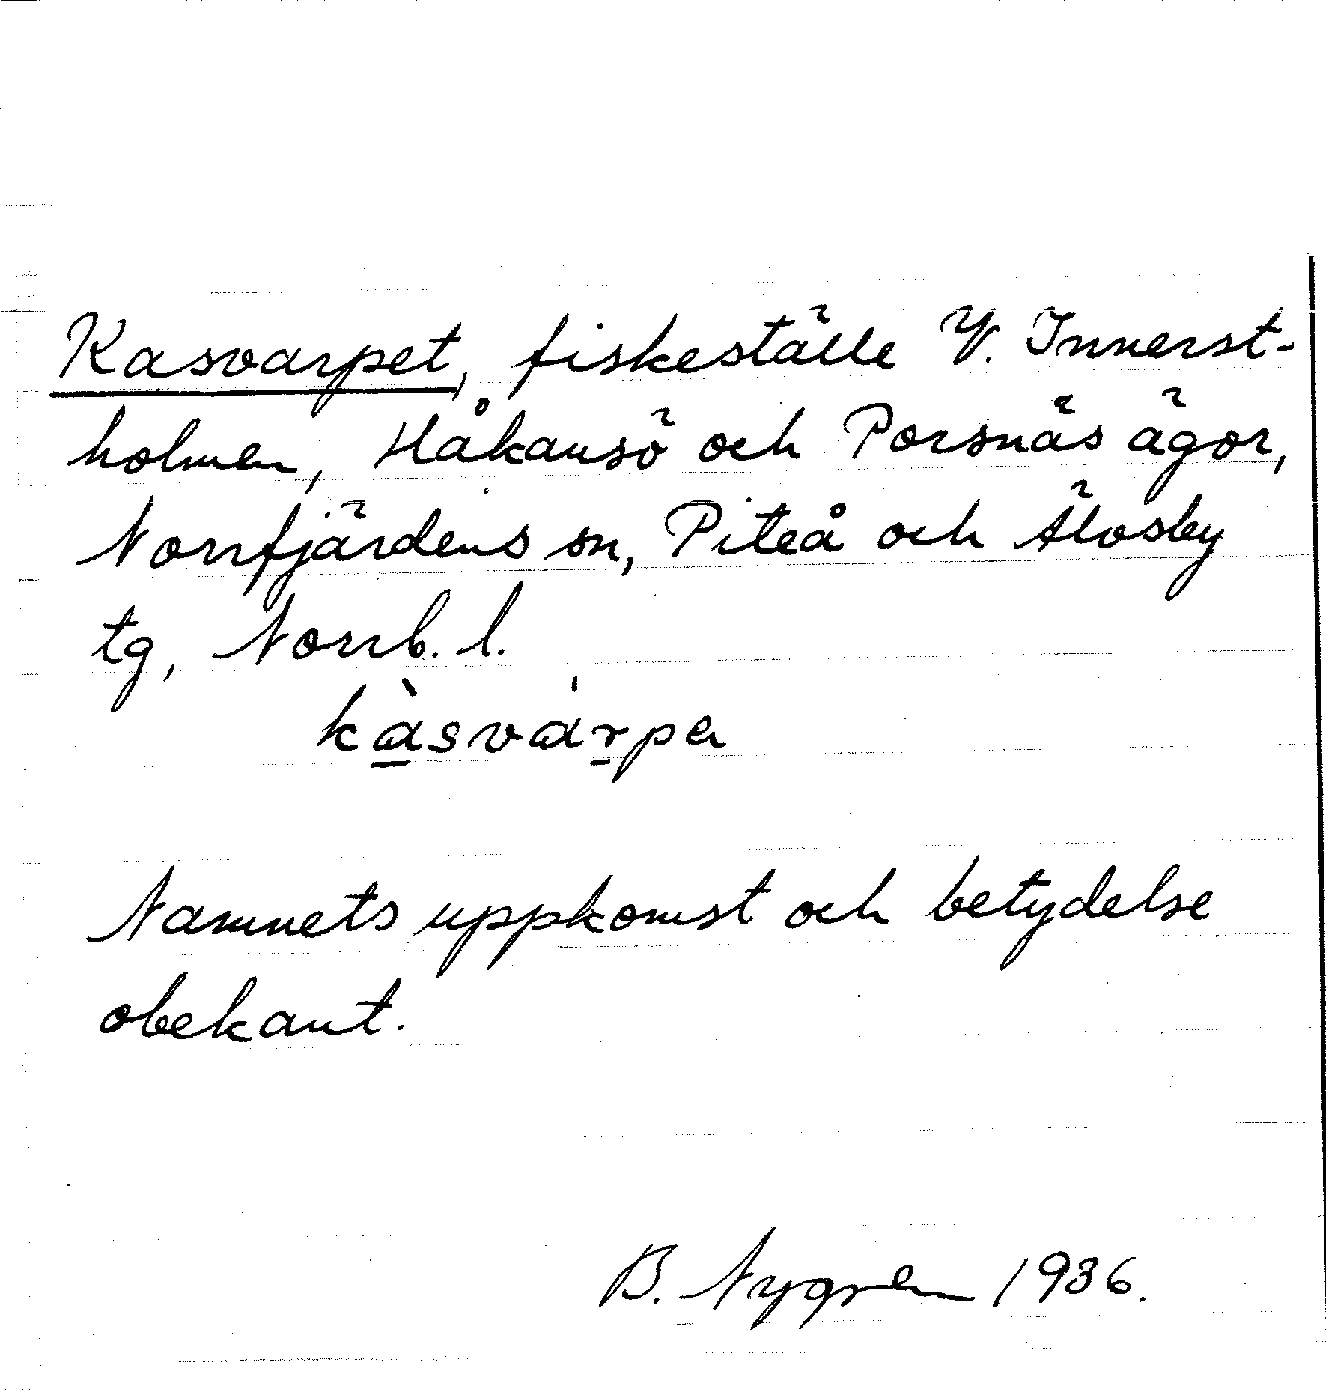 Kasvarpet, fiskeställe V. Innerst-
holmen, Håkansö och Porsnäs ägor,
Norrfjärdens sn, Piteå och Älvsby
tg, Norrb. l.
kàsvárpa
Namnets uppkomst och betydelse
obekant.
B. Nygren 1936.